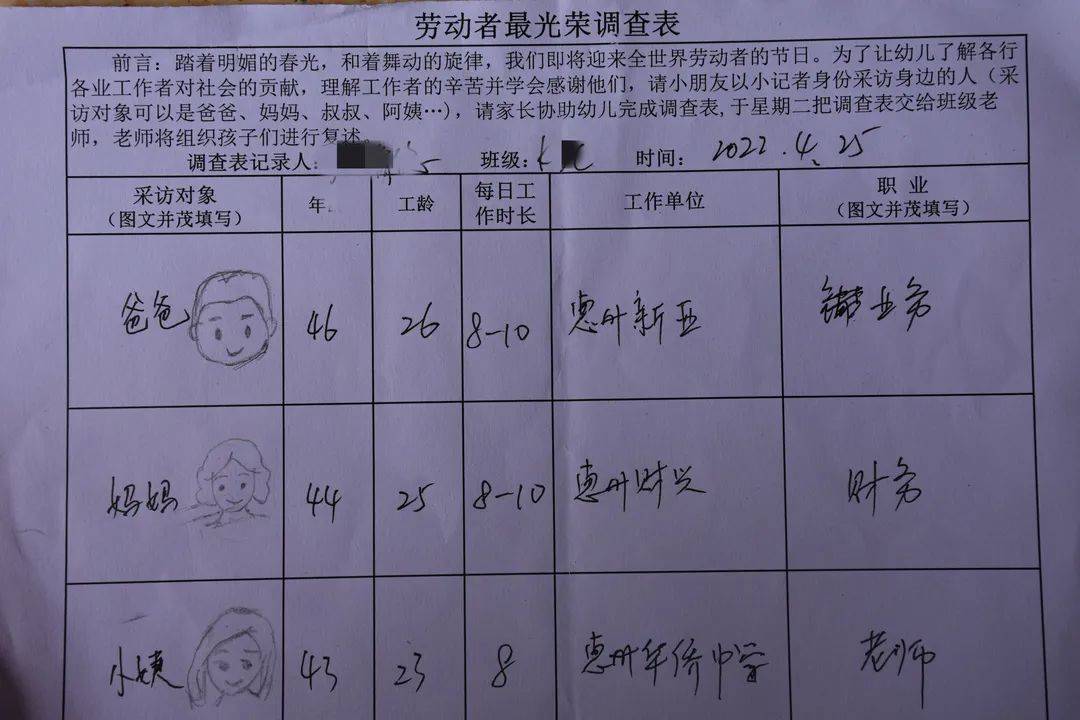 劳动者最光荣调查表
前言：踏着明媚的春光，和着舞动的旋律，我们即将迎来全世界劳动者的节日。为了让幼儿了解各行
各业工作者对社会的贡献，理解工作者的辛苦并学会感谢他们，请小朋友以小记者身份采访身边的人（采
访对象可以是爸爸、妈妈、叔叔、阿姨…），请家长协助幼儿完成调查表，于星期二把调查表交给班级老
师，老师将组织孩子们进行复述。
调查表记录人： 班级： 时间： 2022.4.25
采访对象 年 工龄 每日工 工作单位 职 业
（图文并茂填写） 作时长 （图文并茂填写）
爸爸 46 26 8-10 惠州新亚 业务
妈妈 44 25 8-10 惠州财兴 财务
小姨 43 23 8 惠州华侨中学 老师